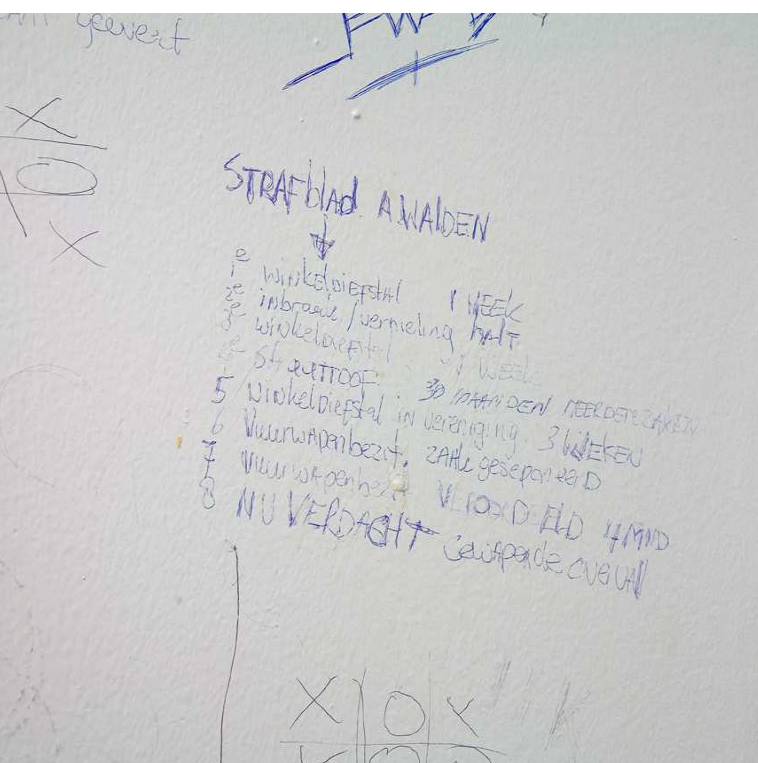 gevert
STRAFblad A.WALDEN
1e winkeldiefstal 1 WEEK
2e inbraak/vernieling HALT
3e winkeldiefstal 1 WEEK
4e STRAATROOF 30 MAANDEN MEERDERE ZAKEN
5 winkeldiefstal in vereniging. 3 WEKEN
6 Vuurwapenbezit. ZAAK geseponeerD
7 Vuurwapenbezit VEROORDEELD 4 MND
8 NU VERDACHT Gewapende overval
X
O
X
X O X